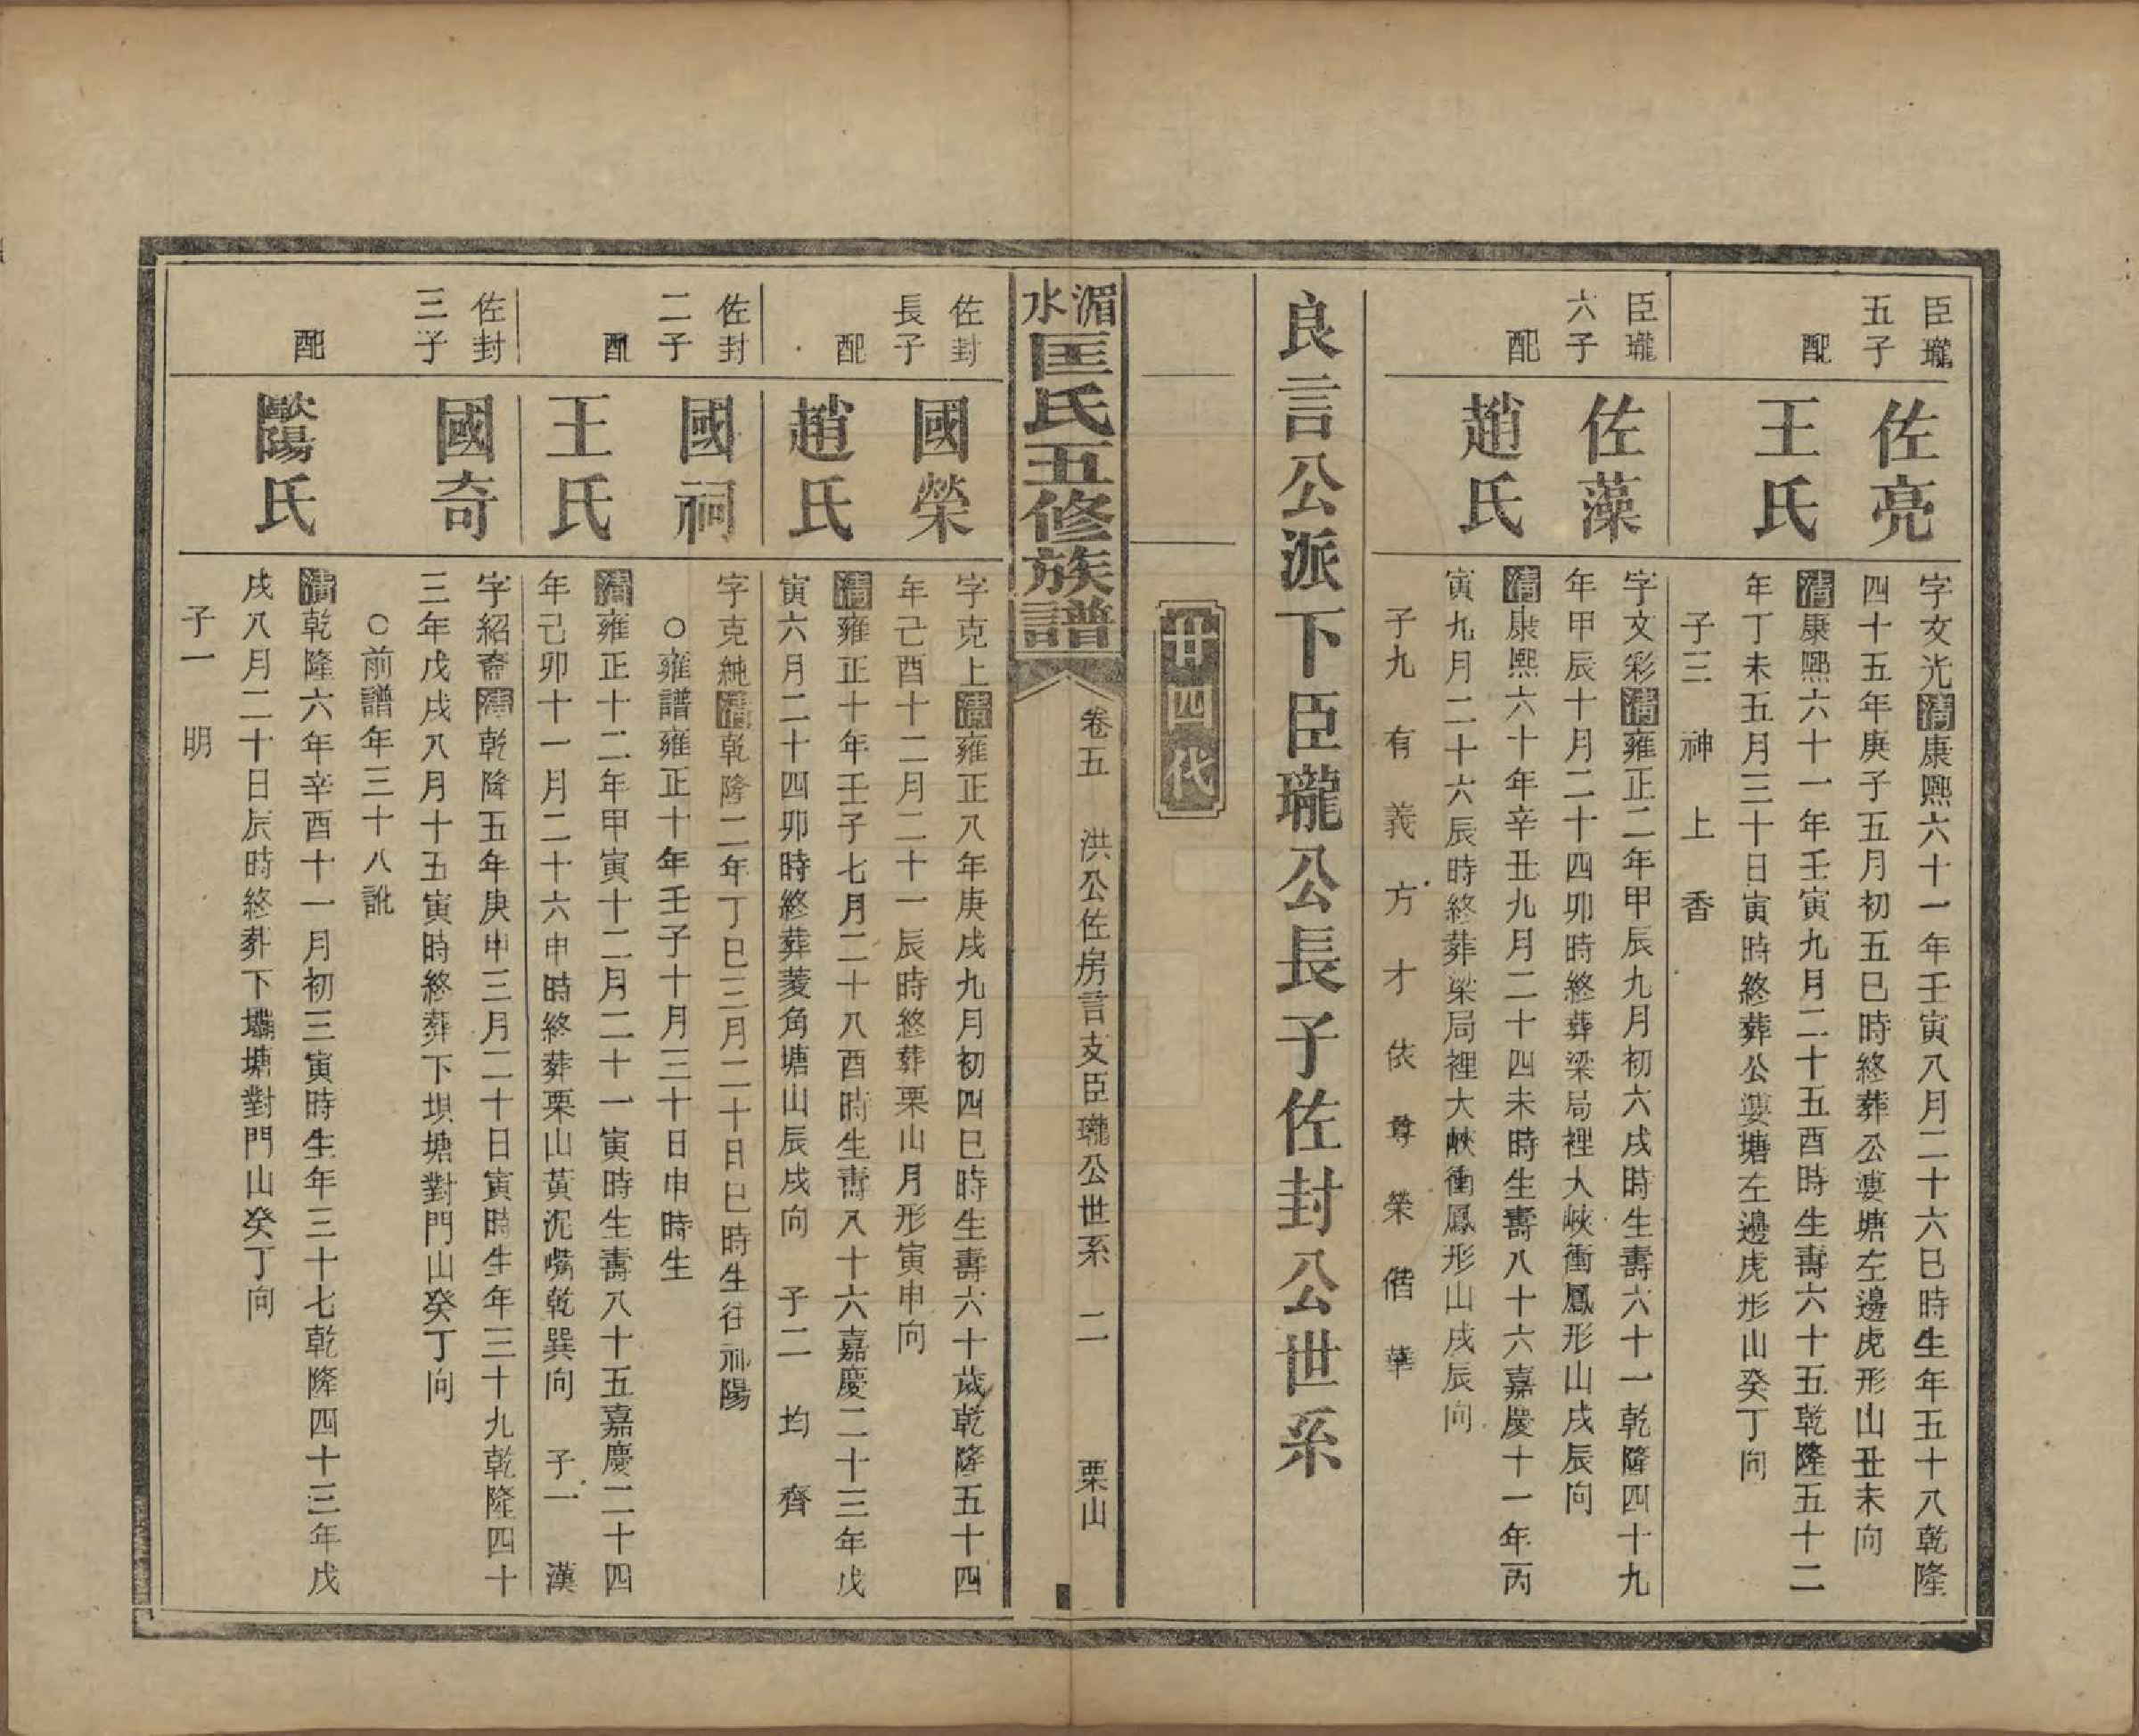 臣瓏
五子
佐亮
字文光清康熙六十一年壬寅八月二十六巳時生年五十八乾隆
四十五年庚子五月初五巳時終葬公婆塘左邊虎形山丑未向
配
王氏
清康熙六十一年壬寅九月二十五酉時生壽六十五乾隆五十二
年丁未五月三十日寅時終葬公婆塘左邊虎形山癸丁向
子三 神 上 香
臣瓏
六子
佐藻
字文彩清雍正二年甲辰九月初六戌時生壽六十一乾隆四十九
年甲辰十月二十四卯時終葬梁局裡大峽衝鳳形山戌辰向
配
趙氏
清康熙六十年辛丑九月二十四未時生壽八十六嘉慶十一年丙
寅九月二十六辰時終葬梁局裡大峽衝鳳形山戌辰向
子九 有 義 方 才 依 尊 榮 偕 華
良言公派下臣瓏公長子佐封公世系
廿四代
湄水匡氏五修族譜
卷五 洪公佐房言支臣瓏公世系 二 栗山
佐封
長子
國榮
字克上清雍正八年庚戌九月初四巳時生壽六十歲乾隆五十四
年己酉十二月二十一辰時終葬栗山月形寅申向
配
趙氏
清雍正十年壬子七月二十八酉時生壽八十六嘉慶二十三年戊
寅六月二十四卯時終葬菱角塘山辰戌向 子二 均 齊
佐封
二子
國祠
字克純清乾隆二年丁巳三月二十日巳時生往祁陽
○雍譜雍正十年壬子十月三十日申時生
配
王氏
清雍正十二年甲寅十二月二十一寅時生壽八十五嘉慶二十四
年己卯十一月二十六申時終葬栗山黃泥嘴乾巽向 子一 漢
佐封
三子
國奇
字紹齋清乾隆五年庚申三月二十日寅時生年三十九乾隆四十
三年戊戌八月十五寅時終葬下垻塘對門山癸丁向
○前譜年三十八訛
配
歐陽氏
清乾隆六年辛酉十一月初三寅時生年三十七乾隆四十三年戊
戌八月二十日辰時終葬下壩塘對門山癸丁向
子一 明